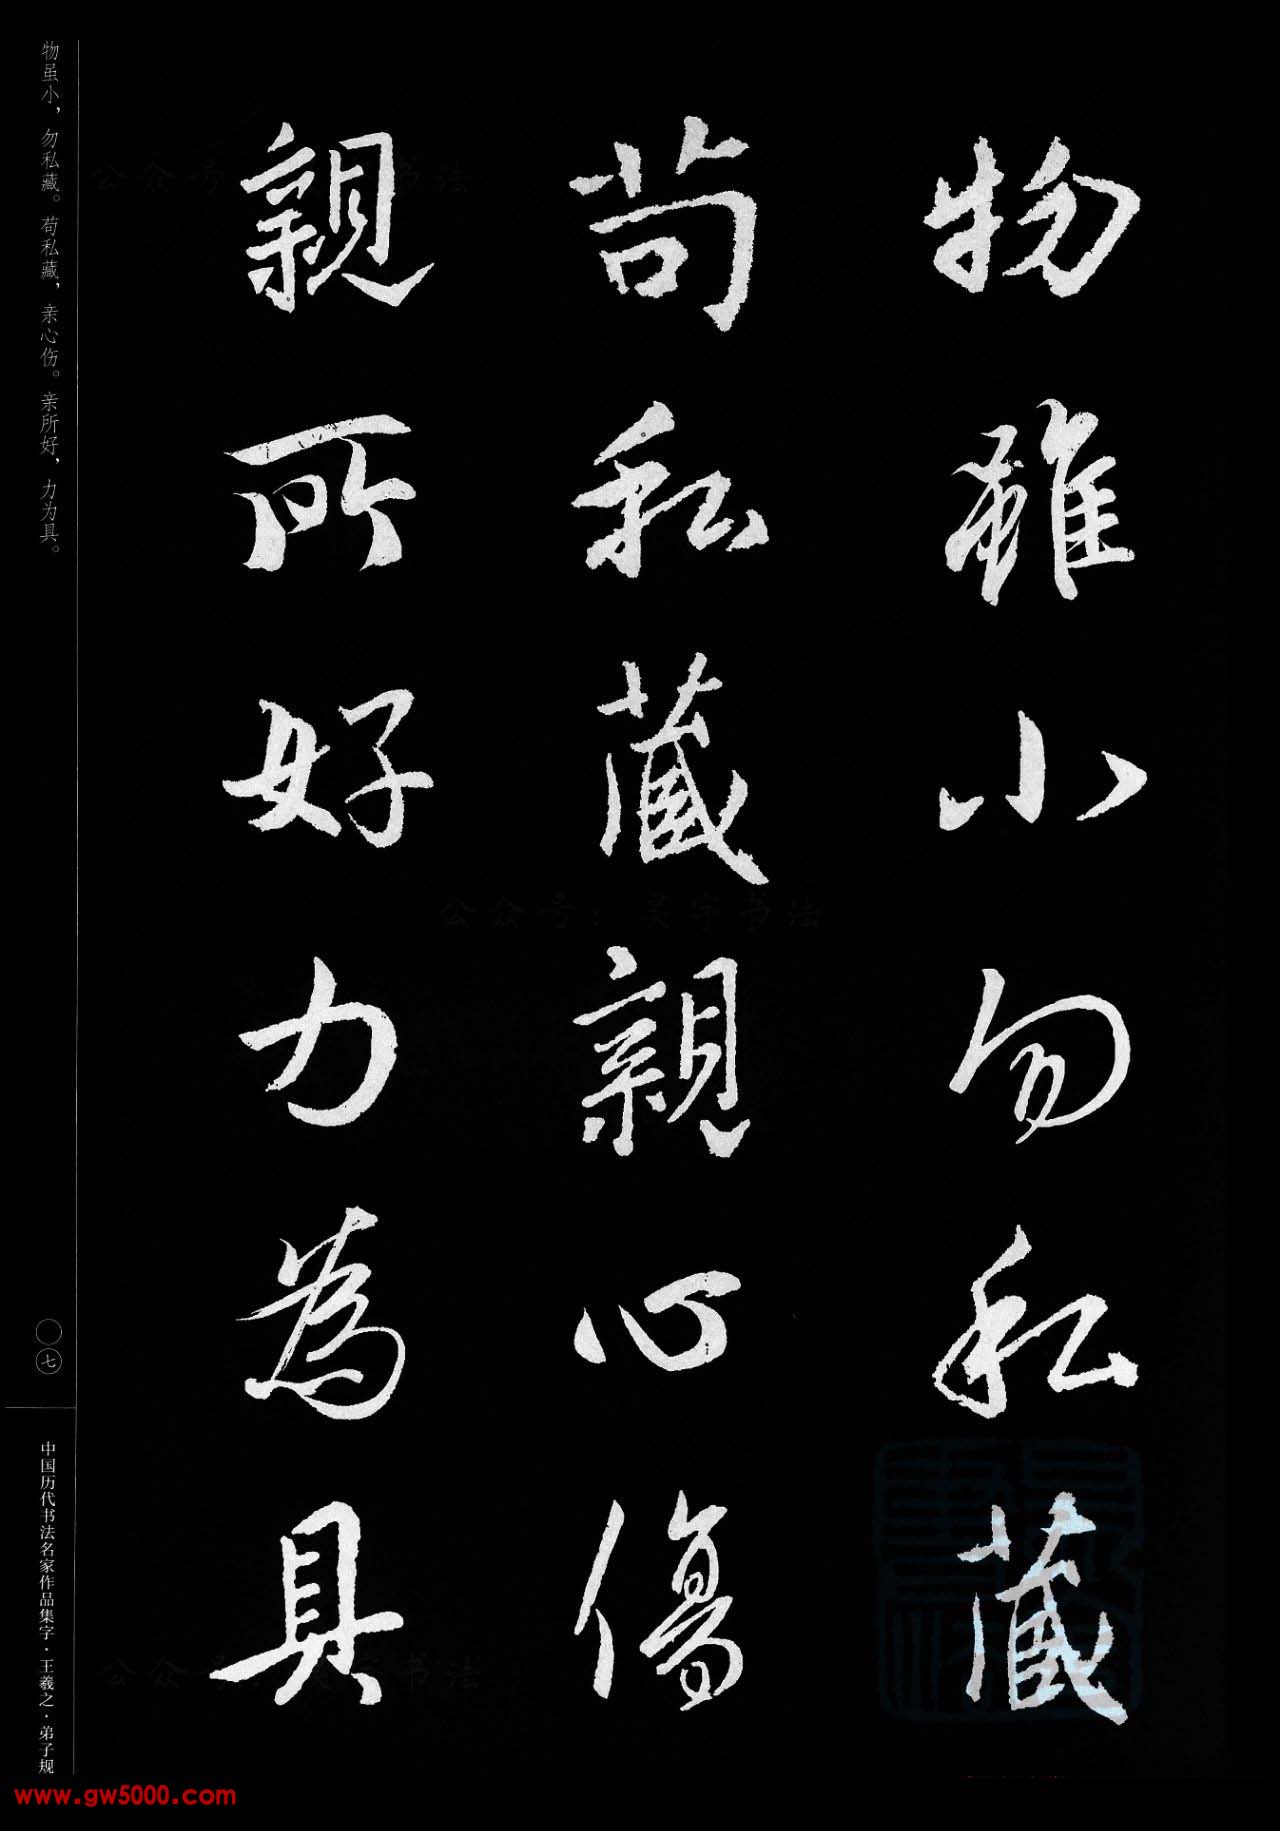 物雖小勿私藏
苟私藏親心傷
親所好力為具
物虽小，勿私藏。苟私藏，亲心伤。亲所好，力为具。
〇七
中国历代书法名家作品集字·王羲之·弟子规
公众号：昊宇书法
www.gw5000.com